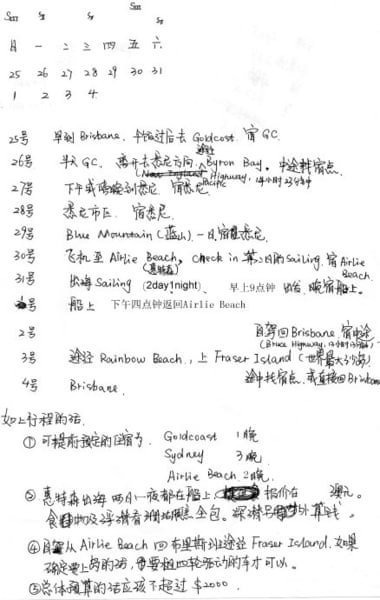 Sun
日 一 二 三 四 五 六
25 26 27 28 29 30 31
1 2 3 4
25号 早到 Brisbane. 午饭过后去 Goldcost 宿 GC.
26号 早上 GC. 离开去悉尼方向. 途经 Byron Bay. 中途找宿点.
Pacific Highway, 14小时23分钟
27号 下午或晚到悉尼 宿悉尼.
28号 悉尼市区. 宿悉尼.
29号 Blue Mountain (蓝山) 一日 宿悉尼.
30号 飞机至 Airlie Beach. check in 第二日的 Sailing. 宿 Airlie Beach.
31号 出海 Sailing (2day1night). 早上9点钟 出发. 晚宿船上.
号 船上 下午四点钟返回Airlie Beach
2号 自驾回 Brisbane. 宿中途
(Bruce Highway,
3号 途径 Rainbow Beach, 上 Fraser Island (世界最大沙岛)
4号 Brisbane. 途中找宿点. 或直接回 Brisbane
如上行程的话.
① 可提前预定的住宿号. Goldcoast 1晚
Sydney 3晚
Airlie Beach 2晚.
② 惠特森出海 两日一夜都在船上 报价在 澳元。
食物及浮潜 全包。深潜另外算钱。
④ 自驾从 Airlie Beach 回布里斯班途经 Fraser Island. 如果
确定要上岛的话, 需要租四轮驱动的车才可以。
⑤ 总体预算的话应该不超过 $2000.